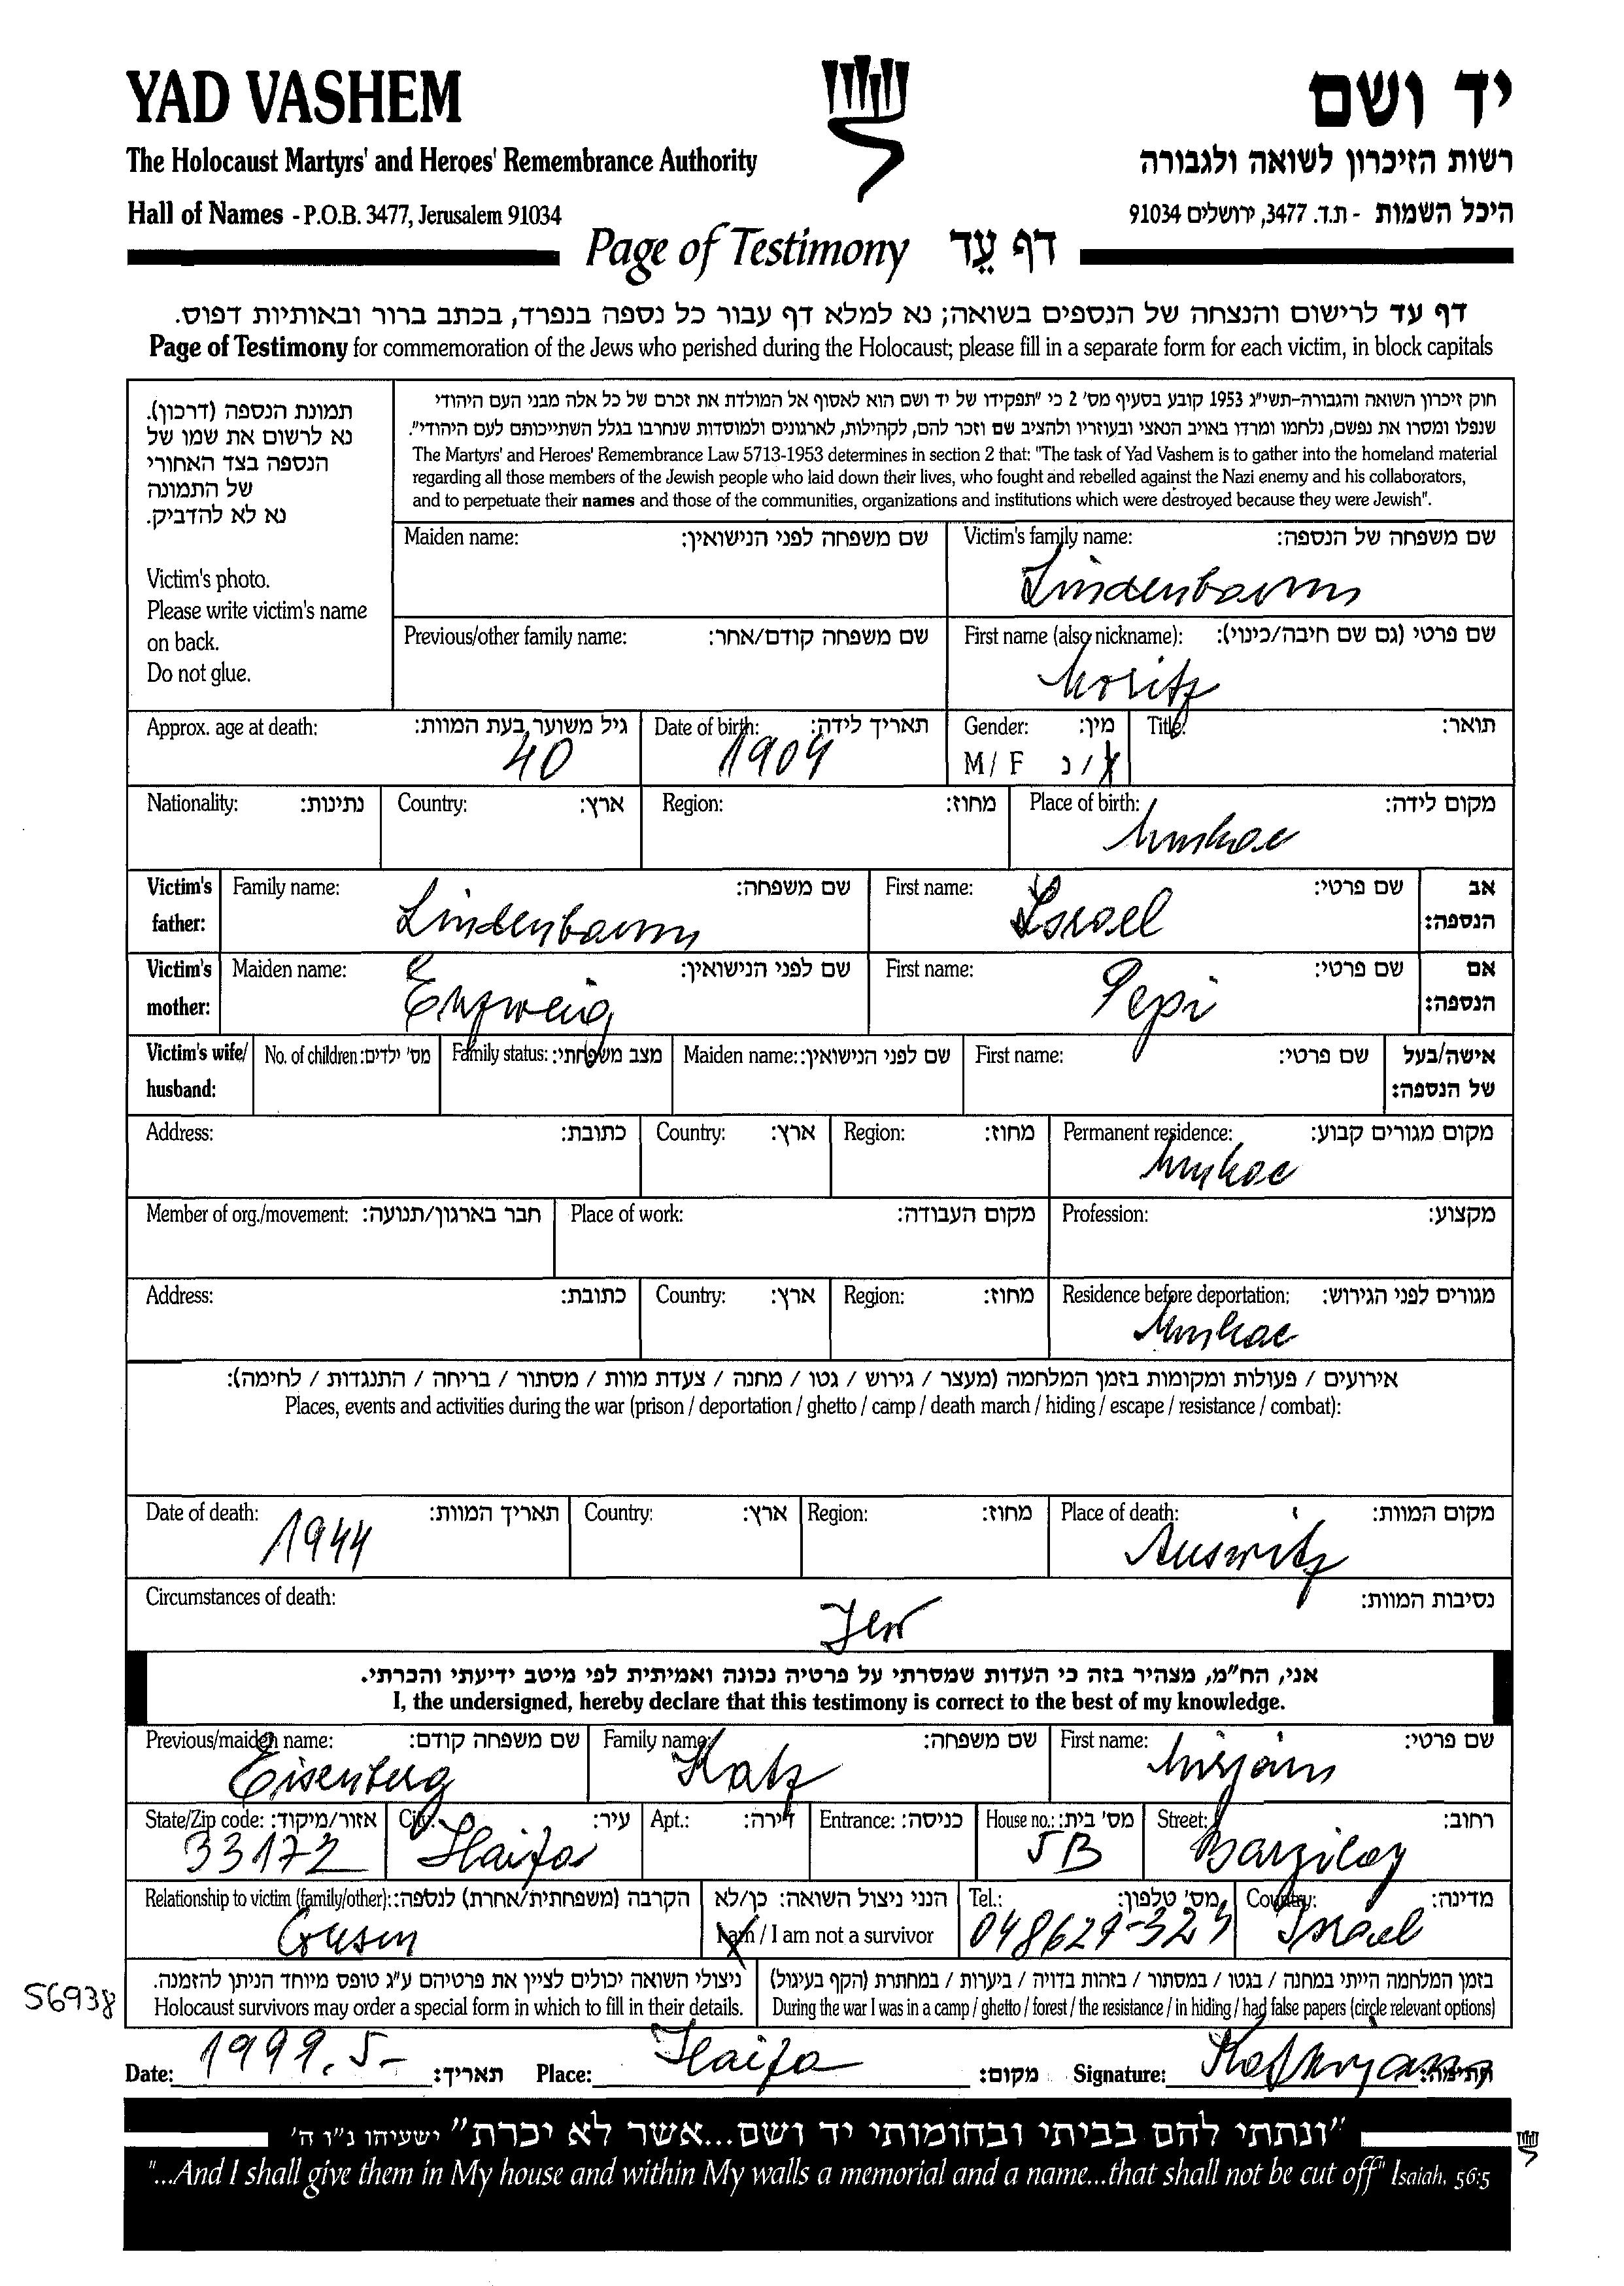 YAD VASHEM
יד ושם
The Holocaust Martyrs' and Heroes' Remembrance Authority
רשות הזיכרון לשואה ולגבורה
Hall of Names - P.O.B. 3477, Jerusalem 91034
היכל השמות - ת.ד. 3477, ירושלים 91034
Page of Testimony דף עֵד
דף עד לרישום והנצחה של הנספים בשואה; נא למלא דף עבור כל נספה בנפרד, בכתב ברור ובאותיות דפוס.
Page of Testimony for commemoration of the Jews who perished during the Holocaust; please fill in a separate form for each victim, in block capitals
תמונת הנספה (דרכון).
נא לרשום את שמו של
הנספה בצד האחורי
של התמונה
נא לא להדביק.
Victim's photo.
Please write victim's name
on back.
Do not glue.
חוק זיכרון השואה והגבורה-תשי"ג 1953 קובע בסעיף מס' 2 כי "תפקידו של יד ושם הוא לאסוף אל המולדת את זכרם של כל אלה מבני העם היהודי
שנפלו ומסרו את נפשם, נלחמו ומרדו באויב הנאצי ובעוזריו ולהציב שם וזכר להם, לקהילות, לארגונים ולמוסדות שנחרבו בגלל השתייכותם לעם היהודי".
The Martyrs' and Heroes' Remembrance Law 5713-1953 determines in section 2 that: "The task of Yad Vashem is to gather into the homeland material
regarding all those members of the Jewish people who laid down their lives, who fought and rebelled against the Nazi enemy and his collaborators,
and to perpetuate their names and those of the communities, organizations and institutions which were destroyed because they were Jewish".
Maiden name: שם משפחה לפני הנישואין:
Victim's family name: שם משפחה של הנספה:
Lindenbaum
Previous/other family name: שם משפחה קודם/אחר:
First name (also nickname): שם פרטי (גם שם חיבה/כינוי):
Moritz
Approx. age at death: גיל משוער בעת המוות:
40
Date of birth: תאריך לידה:
1904
Gender: מין:
M / F ז / נ
Title: תואר:
Nationality: נתינות:
Country: ארץ:
Region: מחוז:
Place of birth: מקום לידה:
Munkac
Victim's father:
Family name: שם משפחה:
Lindenbaum
First name: שם פרטי:
Israel
אב הנספה:
Victim's mother:
Maiden name: שם לפני הנישואין:
First name: שם פרטי:
Pepi
אם הנספה:
Victim's wife/ husband:
No. of children: מס' ילדים:
Family status: מצב משפחתי:
Maiden name: שם לפני הנישואין:
First name: שם פרטי:
אישה/בעל של הנספה:
Address: כתובת:
Country: ארץ:
Region: מחוז:
Permanent residence: מקום מגורים קבוע:
Munkac
Member of org./movement: חבר בארגון/תנועה:
Place of work: מקום העבודה:
Profession: מקצוע:
Address: כתובת:
Country: ארץ:
Region: מחוז:
Residence before deportation: מגורים לפני הגירוש:
Munkac
אירועים / פעולות ומקומות בזמן המלחמה (מעצר / גירוש / גטו / מחנה / צעדת מוות / מסתור / בריחה / התנגדות / לחימה):
Places, events and activities during the war (prison / deportation / ghetto / camp / death march / hiding / escape / resistance / combat):
Date of death: תאריך המוות:
1944
Country: ארץ:
Region: מחוז:
Place of death: מקום המוות:
Auswitz
Circumstances of death: נסיבות המוות:
Jew
אני, הח"מ, מצהיר בזה כי העדות שמסרתי על פרטיה נכונה ואמיתית לפי מיטב ידיעתי והכרתי.
I, the undersigned, hereby declare that this testimony is correct to the best of my knowledge.
Previous/maiden name: שם משפחה קודם:
Eisenberg
Family name: שם משפחה:
Katz
First name: שם פרטי:
Mirjam
State/Zip code: אזור/מיקוד:
33172
City: עיר:
Haifa
Apt.: דירה:
Entrance: כניסה:
House no.: מס' בית:
5B
Street: רחוב:
Barzilay
Relationship to victim (family/other): הקרבה (משפחתית/אחרת) לנספה:
Cousin
הנני ניצול השואה: כן/לא
I am / I am not a survivor
Tel.: מס' טלפון:
048627-323
Country: מדינה:
Israel
56938
ניצולי השואה יכולים לציין את פרטיהם ע"ג טופס מיוחד הניתן להזמנה.
Holocaust survivors may order a special form in which to fill in their details.
בזמן המלחמה הייתי במחנה / בגטו / במסתור / בזהות בדויה / ביערות / במחתרת (הקף בעיגול)
During the war I was in a camp / ghetto / forest / the resistance / in hiding / had false papers (circle relevant options)
Date: 1999.5- תאריך:
Place: Haifa מקום:
Signature: Katz Mirjam חתימה:
"ונתתי להם בביתי ובחומותי יד ושם...אשר לא יכרת" ישעיהו נ"ו ה'
"...And I shall give them in My house and within My walls a memorial and a name...that shall not be cut off" Isaiah, 56:5